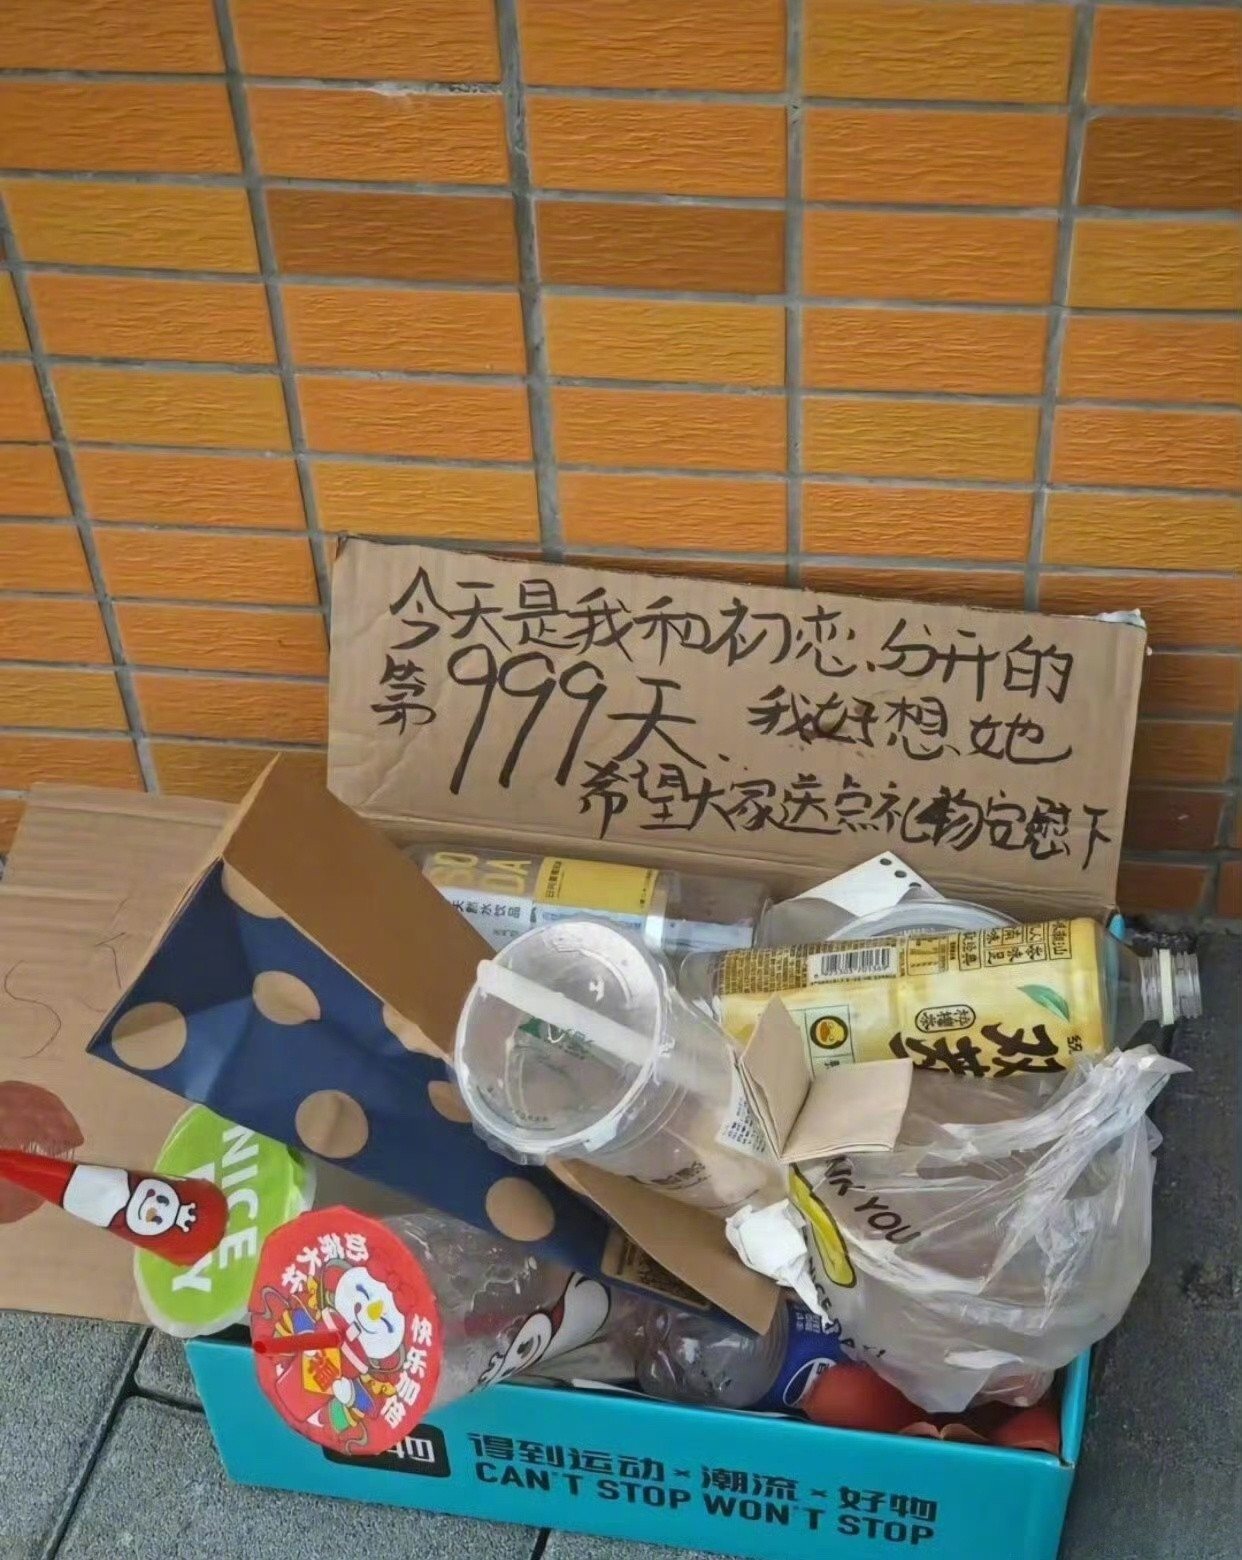 今天是我和初恋分开的
第999天 我好想她
希望大家送点礼物安慰下
SO
DA
天然水饮品
双萃
柠檬茶
NICE
奶茶大杯
快乐加倍
NK YOU
得到运动×潮流×好物
CAN'T STOP WON'T STOP